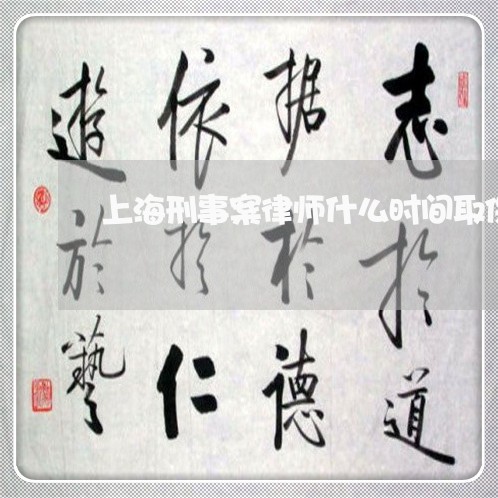 志於道
据於德
依於仁
遊於藝
上海刑事案律师什么时间取